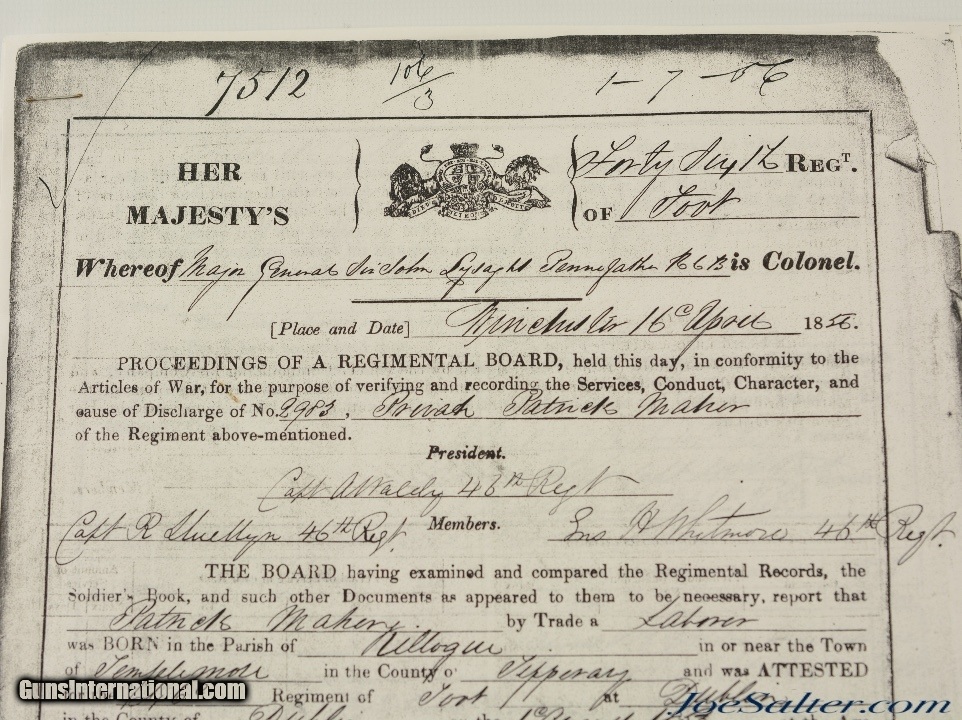 7512 106/3 1-7-56
HER
MAJESTY'S
Forty Sixth REGT.
OF Foot
Whereof Major General Sir John Lysaght Pennefather KCB is Colonel.
[Place and Date] Winchester 16 April 1856.
PROCEEDINGS OF A REGIMENTAL BOARD, held this day, in conformity to the
Articles of War, for the purpose of verifying and recording the Services, Conduct, Character, and
cause of Discharge of No. 2983, Private Patrick Maher
of the Regiment above-mentioned.
President.
Capt 46th Regt
Members.
Capt R Lluellyn 46th Regt Ens H Whitmore 46th Regt.
THE BOARD having examined and compared the Regimental Records, the
Soldier's Book, and such other Documents as appeared to them to be necessary, report that
Patrick Maher by Trade a Laborer
was BORN in the Parish of in or near the Town
of Templemore in the County of Tipperary and was ATTESTED
Regiment of Foot at Dublin
in the County of Dublin on the
GunsInternational.com
JoeSalter.com
JoeSalter.com